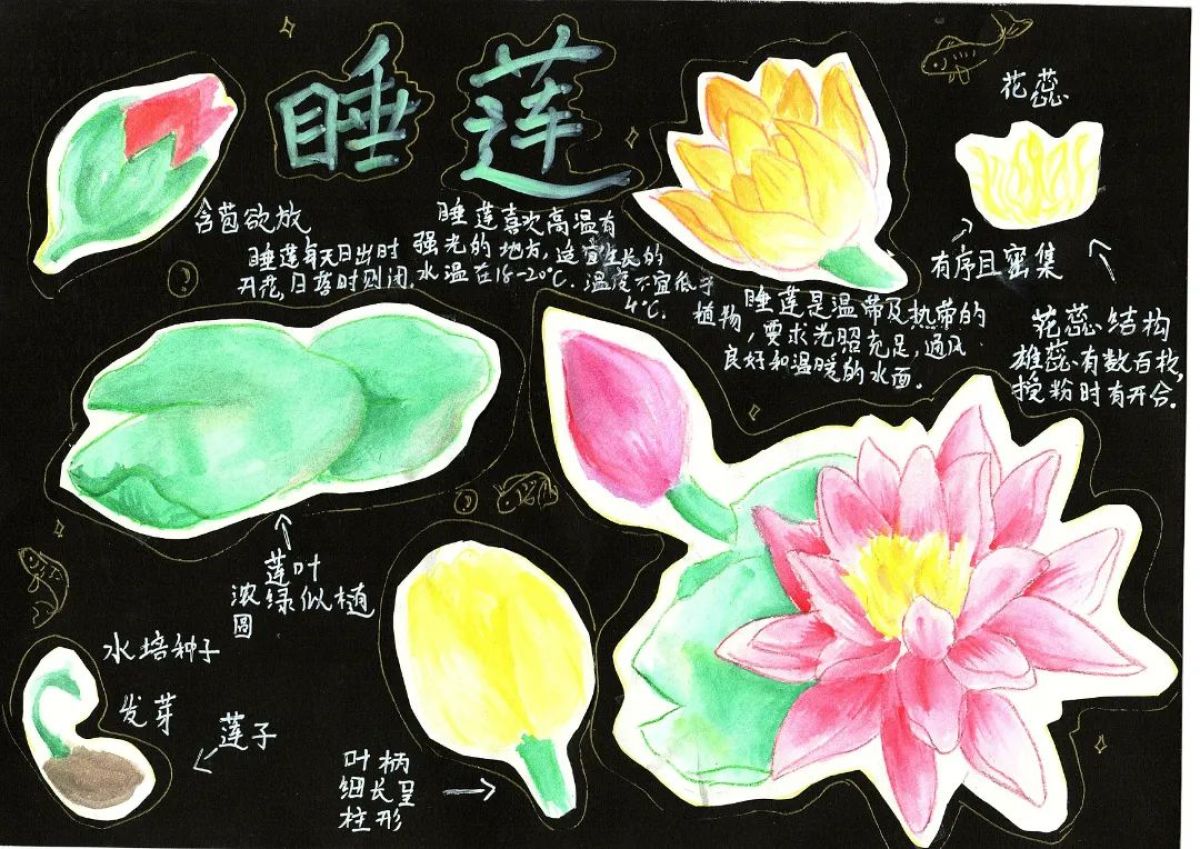 睡莲
花蕊
含苞欲放
睡莲每天日出时
开花,日落时则闭.
睡莲喜欢高温有
强光的地方,适宜生长的
水温在18-20°C.温度不宜低于
4°C.
睡莲是温带及热带的
植物,要求光照充足,通风
良好和温暖的水面.
有序且密集
花蕊结构
雄蕊有数百枚,
授粉时有开合.
莲叶
浓绿似椭
圆
水培种子
发芽
莲子
叶柄
细长呈
柱形